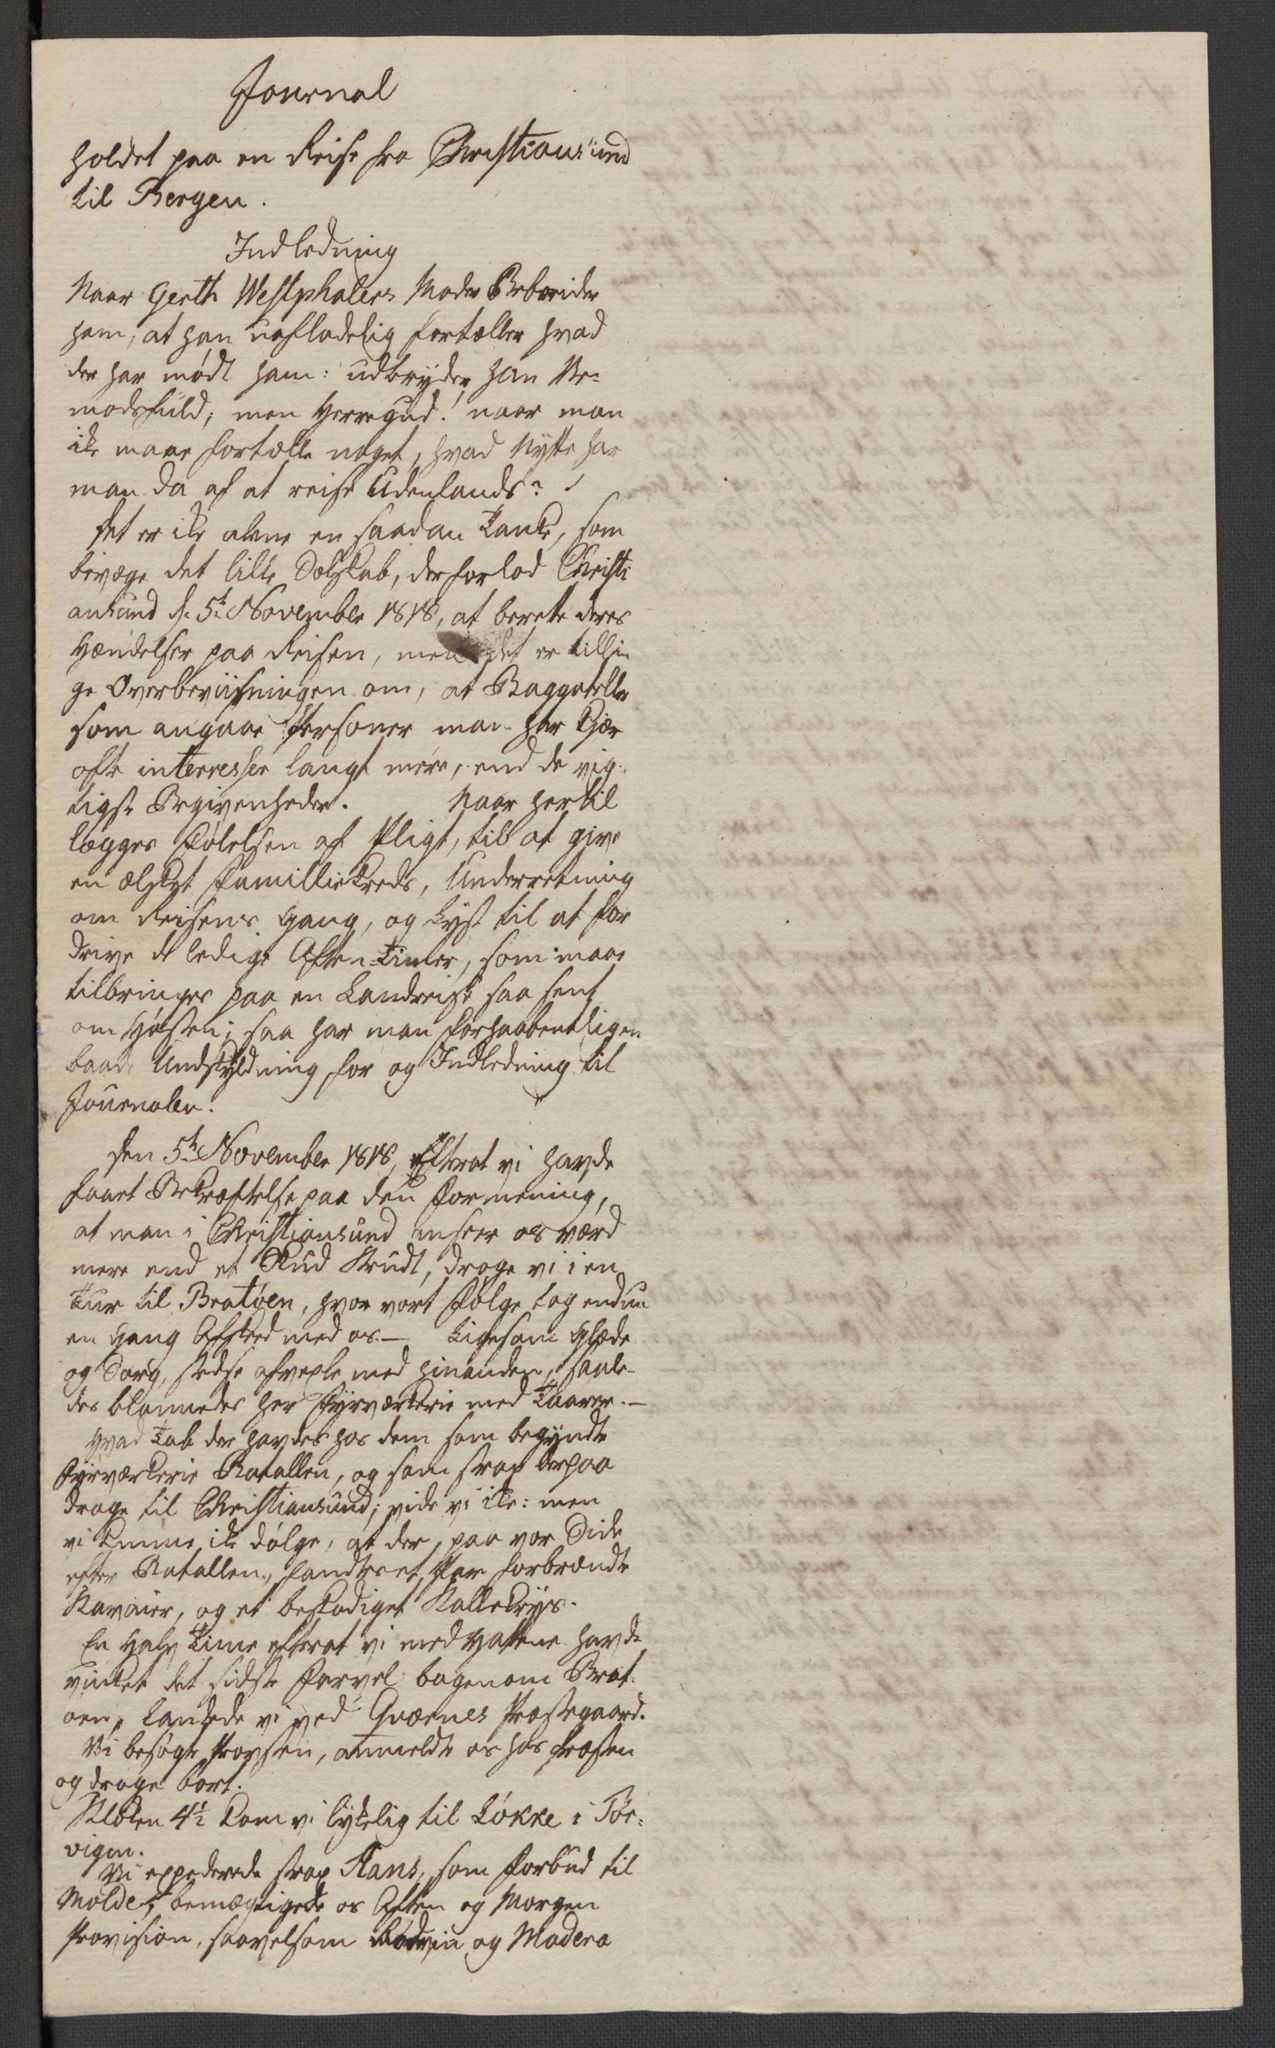 Journal
holdet paa en Reise fra Christiansund
til Bergen.
Indledning
Naar Gerth Westphalers Moder Bebreider
ham, at han uafladelig fortæller hvad
der har mødt ham: udbryder han Ve-
modsfuld; men Herregud! naar man
ike maae fortælle noget, hvad Nytte har
man da af at reise Udenlands?
Det er ike alene en saadan Tanke, som
bevæge det lille Selskab, der forlod Christi
ansund d. 5te November 1818, at berette deres
Hændelser paa Reisen, men det er tilli-
ge Overbeviisningen om, at Baggateller
som angaae Personer man har Kjær
ofte interresser langt mere, end de vig-
tigste Begivenheder. Naar hertil
lægges Følelsen af Pligt, til at give
en elsket Familliekreds, Underretning
om Reisens Gang, og Lyst til at for
drive de ledige Aften-Timer, som maae
tilbringes paa en Landreise saa sent
om Høsten; saa har man forhaabentligen
baade Undskyldning for og Indledning til
Journalen.
Den 5te November 1818, Efterat vi havde
faaet Bekræftelse paa den Formening,
at man i Christiansund anseer os værd
mere end et Skud Krudt, droge vi i en
Tur til Bratøen, hvor vort Følge tog endnu
en Gang Afskeed med os. — Ligesom Glæde
og Sorg, stedse afvexle med hinanden, saale-
des blannedes her Fyrværkerie med Taarer. —
Hvad Tab der havdes hos dem som begyndte
Fyrværkerie Batallen, og som strax derpaa
droge til Christiansund; vide vi ike: men
vi kunne ike dølge, at der, paa vor Side
efter Batallen, fandtes et Par forbrændte
Kavaier, og et beskadiget Kallekrys.
En Halv Time efterat vi med Hattene havde
vinket det sidste Farvel bagenom Brat-
øen, landede vi ved Qværnes Præstegaard.
Vi besøgte Provsten, anmeldte os hos Præsten
og droge bort.
Klokken 4½ kom vi lykelig til Løkke i Tor-
vigen.
Vi expederede strax Hans, som Forbud til
Molde, bemægtigede os Aften og Morgen
Provision, saavelsom Rødviin og Madera